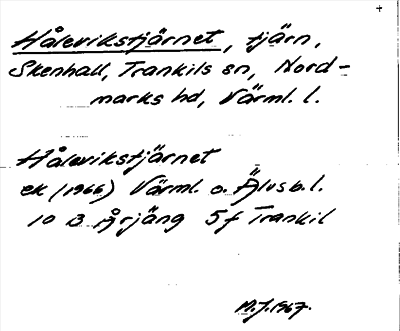 Hålevikstjärnet, tjärn,
Skenhall, Trankils sn, Nord-
marks hd, Värml. l.
Hålevikstjärnet
ek (1966) Värml. o. Älvsb. l.
10 B Årjäng 5f Trankil
M.J. 1967.